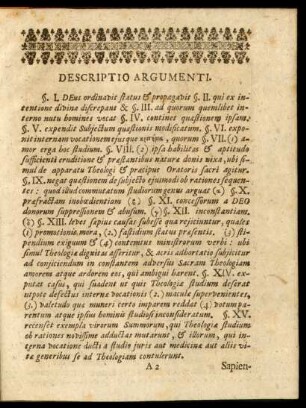 DESCRIPTIO ARGUMENTI.
§. I. DEus ordinavit status & propagavit §. II. qui ex in-
tentione divina discrepant & §. III. ad quorum quemlibet in-
terno nutu homines vocat §. IV. continet quæstionem ipsam,
§. V. expendit Subjectum quæstionis modificatum, §. VI. expo-
nit internam vocationem ejusque quorum, §. VII. (1) a-
mor erga hoc studium. §. VIII. (2) ipsa habilitas & aptitudo
sufficienti eruditione & præstantibus naturæ donis nixa, ubi si-
mul de apparatu Theologi & præcipue Oratoris sacri agitur.
§, IX. negat quæstionem de subjecto ejusmodi ob rationes sequen-
tes: quod illud commutatum studiorum genus arguat (1) §. X.
præfractam inobedientiam (2) §. XI. concessorum a DEO
donorum suppressionem & abusum, (3) §. XII. inconstantiam,
(4) §. XIII. levet sæpius causas subesse quæ rejiciuntur, qualis
(1) promotionis mora, (2.) fastidium status præsentis, (3) sti-
pendium exiguum & (4) contemtus ministrorum verbi: ubi
simul Theologiæ dignitas asseritur, & acris adhortatio subjicitur
ad conjiciendum in constantem adversus Sacram Theologiam
amorem atque ardorem eos, qui ambigui hærent. §. XIV. ex-
putat casus, qui suadent ut quis Theologiæ studium deserat
utpote defectus internæ vocationis (2.) maculæ supervenientes,
(3.) metudo que numeri certe imparem reddat (4) votum pa-
rentum atque ipsius hominis studiosi inconsideratum. §. XV.
recenset exempla virorum Summorum, qui Theologiæ studium
ob rationes nævissime adductas mutarunt, & illorum, qui in-
terna vocatione ducti a studio juris aut medicinæ aut aliis vi-
tæ generibus se ad Theologiam contulerunt.
A 2 Sapien-